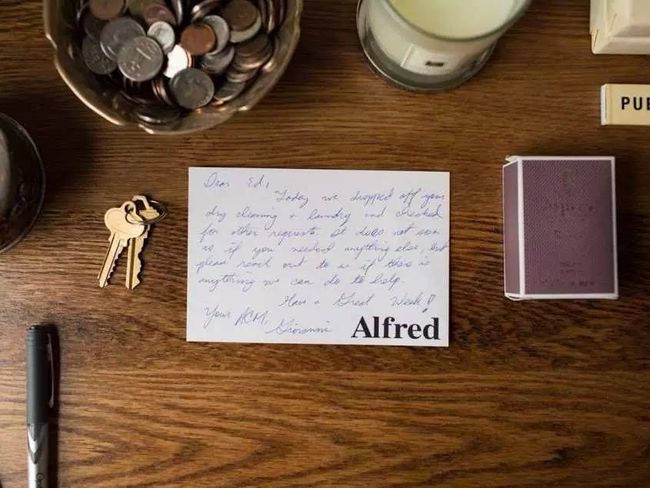 PUB
Dear Ed,
Today we dropped off your
dry cleaning + laundry and checked
for other requests. It does not
us if you needed anything else, but
please reach out to us if there is
anything we can do to help.
Have a Great Week!
Your ACM,
Giovanni
Alfred